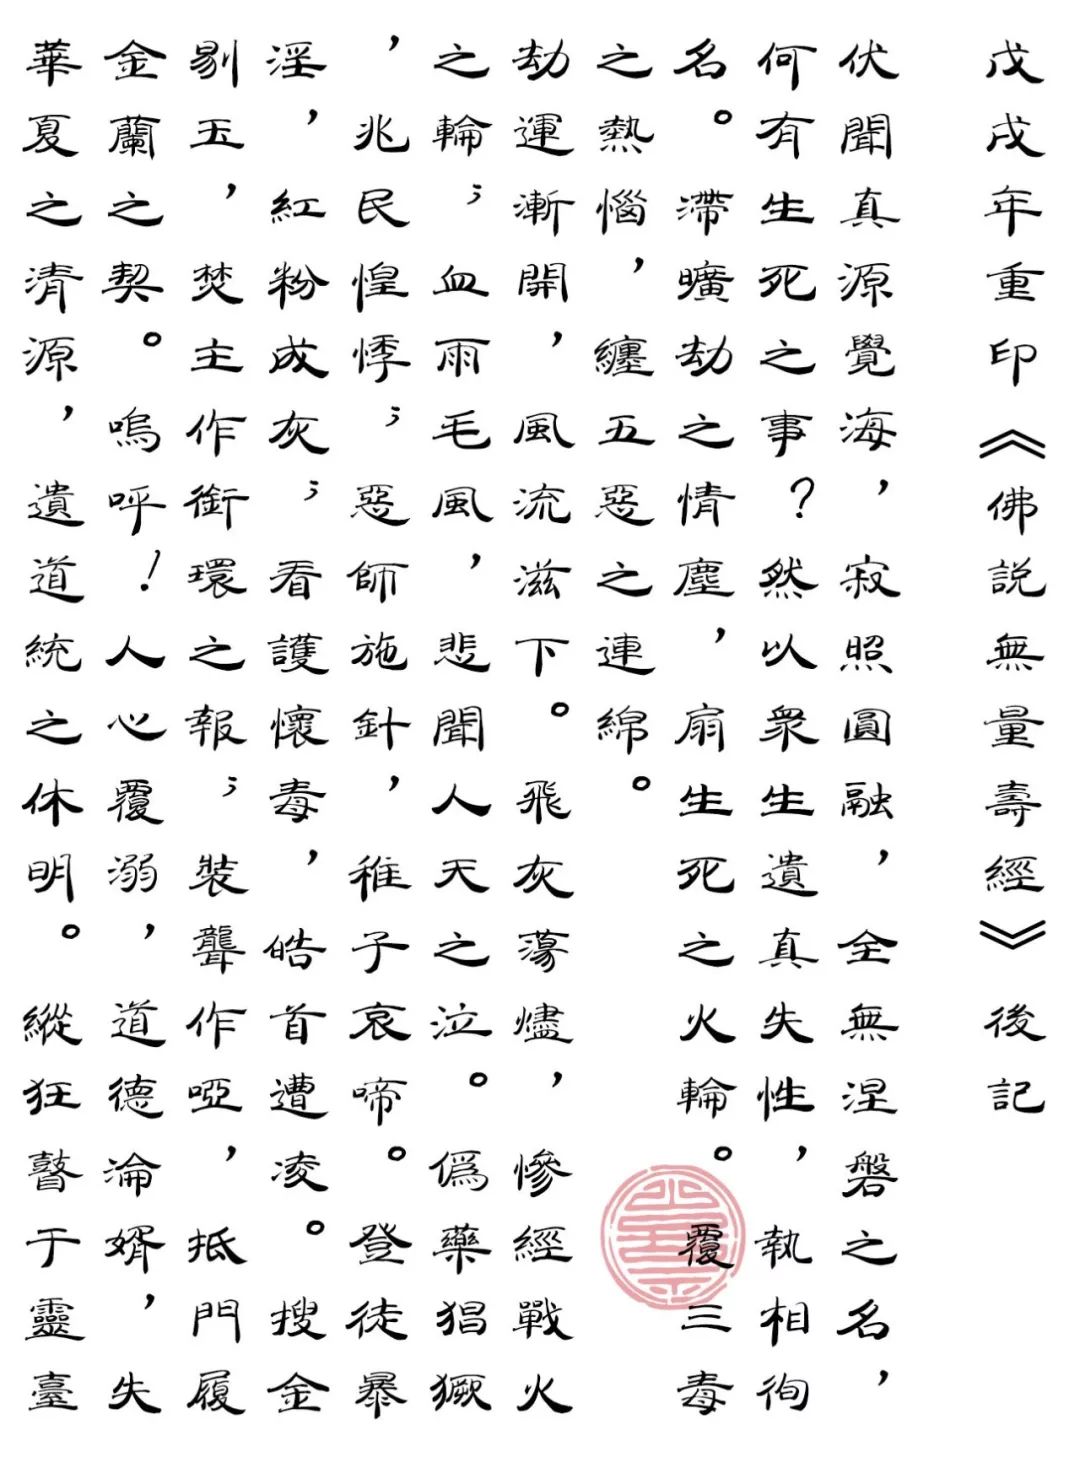 戊戌年重印《佛説無量壽經》後記
伏聞真源覺海，寂照圓融，全無涅磐之名，
何有生死之事？然以衆生遺真失性，執相徇
名。滯曠劫之情塵，扇生死之火輪。覆三毒
之熱惱，纏五惡之連綿。
劫運漸開，風流滋下。飛灰蕩燼，慘經戰火
之輪；血雨毛風，悲聞人天之泣。僞藥猖獗
，兆民惶悸；惡師施針，稚子哀啼。登徒暴
淫，紅粉成灰；看護懷毒，皓首遭凌。搜金
剔玉，焚主作銜環之報；裝聾作啞，抵門履
金蘭之契。嗚呼！人心覆溺，道德淪婿，失
華夏之清源，遺道統之休明。縱狂瞽于靈臺